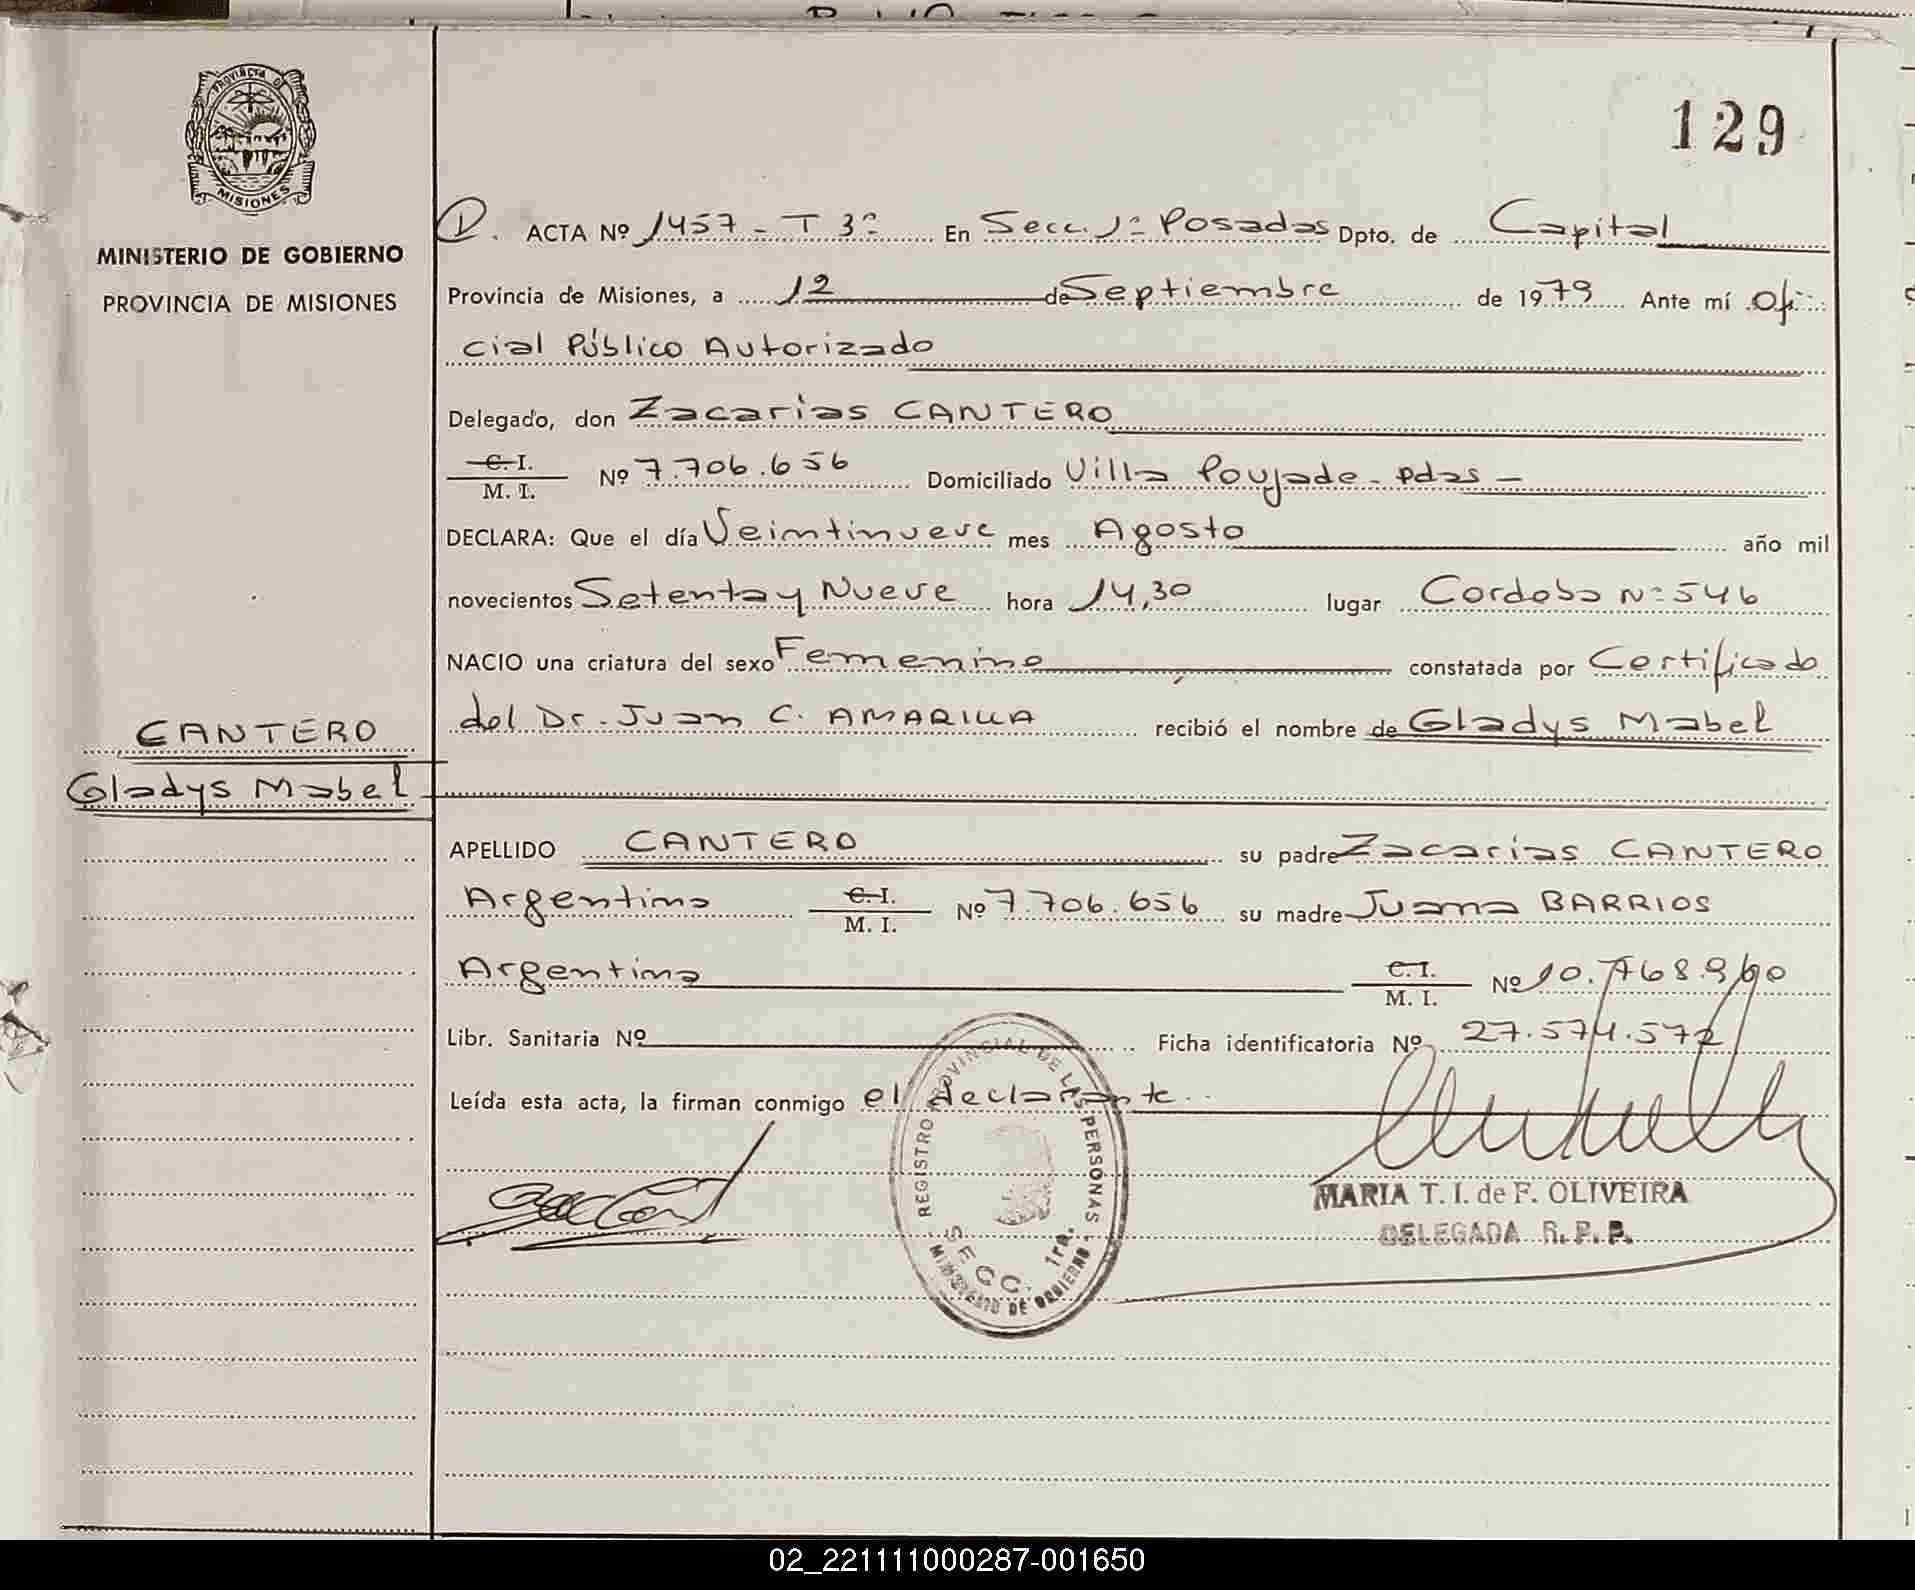 129
PROVINCIA DE
MISIONES
MINISTERIO DE GOBIERNO
PROVINCIA DE MISIONES
CANTERO
Gladys Mabel
1. ACTA Nº 1457 - T 3º En Secc. 1º Posadas Dpto. de Capital
Provincia de Misiones, a 12 de Septiembre de 1979 Ante mí Ofi
cial Público Autorizado
Delegado, don Zacarias CANTERO
C. I.
M. I. Nº 7.706.656 Domiciliado Villa Poujade - Pdas -
DECLARA: Que el día Veintinueve mes Agosto año mil
novecientos Setenta y Nueve hora 14,30 lugar Cordoba Nº 546
NACIO una criatura del sexo Femenino constatada por Certificado
del Dr. Juan C. AMARILLA recibió el nombre de Gladys Mabel
APELLIDO CANTERO su padre Zacarias CANTERO
Argentino C. I.
M. I. Nº 7.706.656 su madre Juana BARRIOS
Argentina C. I.
M. I. Nº 10.768.960
Libr. Sanitaria Nº Ficha identificatoria Nº 27.574.572
Leída esta acta, la firman conmigo el declarante.
REGISTRO PROVINCIAL DE LAS PERSONAS
SECC. 1ra.
MINISTERIO DE GOBIERNO
MARIA T. I. de F. OLIVEIRA
DELEGADA R. P. P.
02_221111000287-001650